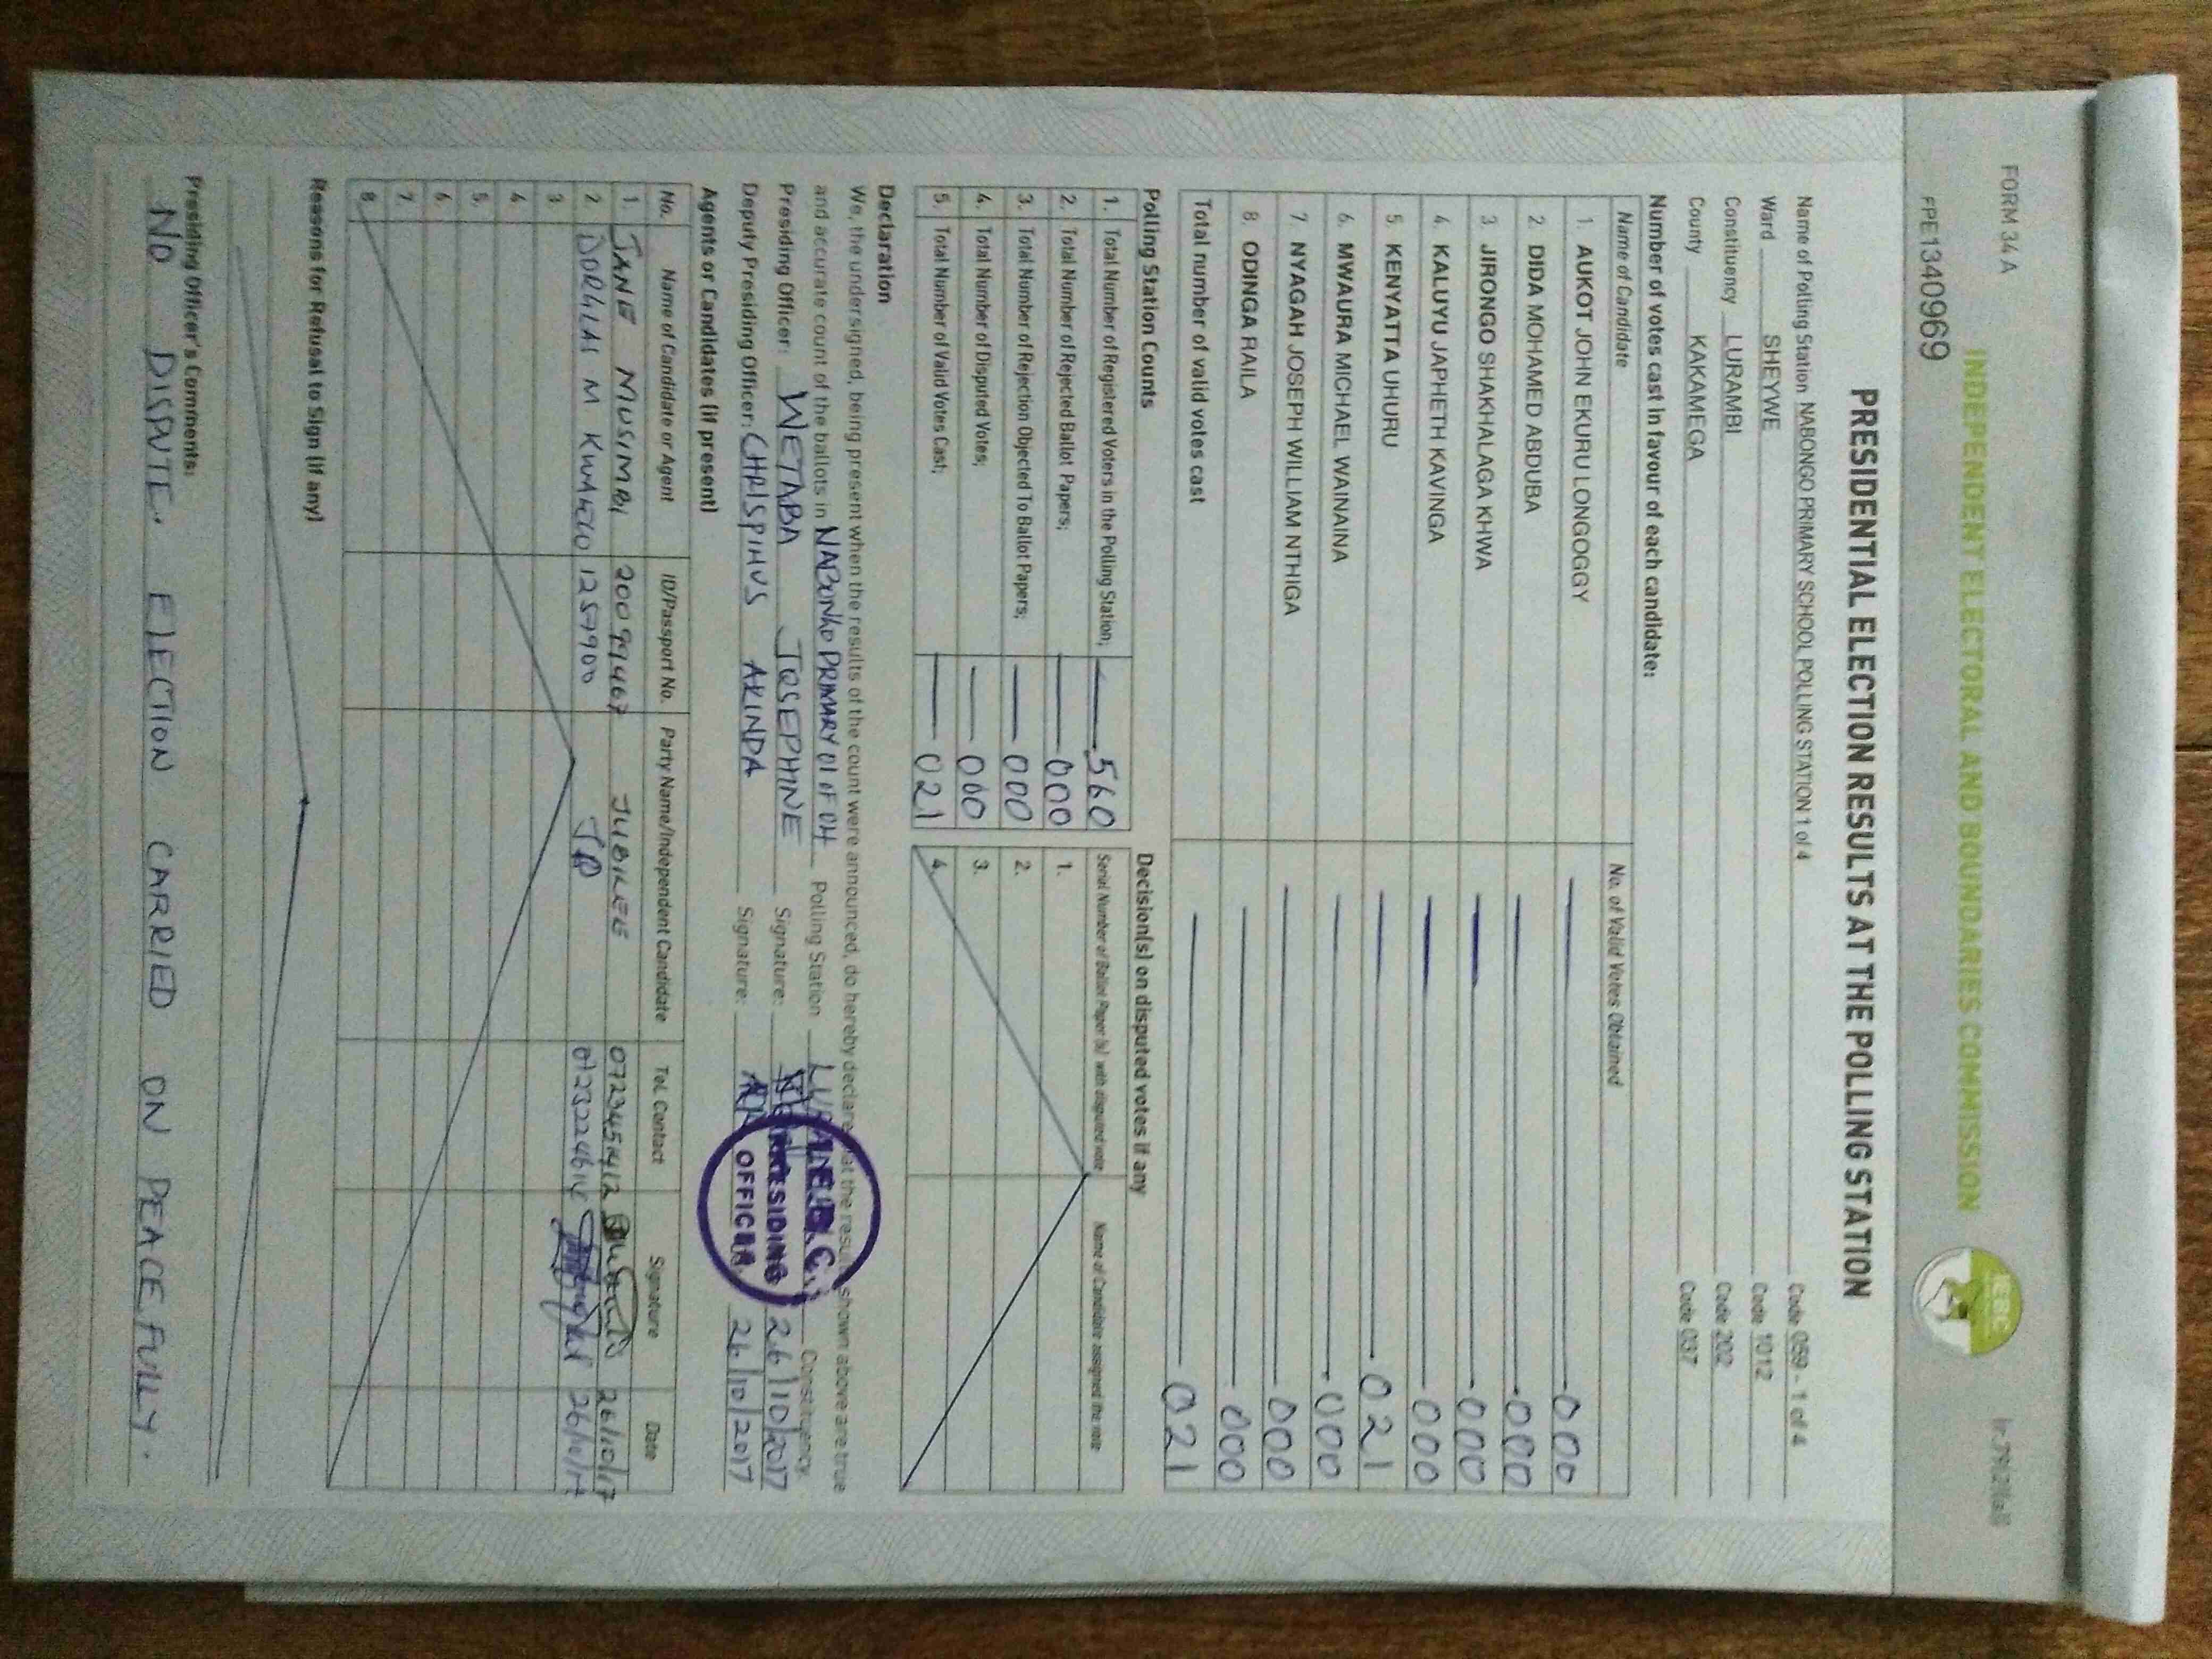 FORM 34 A
INDEPENDENT ELECTORAL AND BOUNDARIES COMMISSION
IEBC
FPE1340969
PRESIDENTIAL ELECTION RESULTS AT THE POLLING STATION
Name of Polling Station NABONGO PRIMARY SCHOOL POLLING STATION 1 of 4 Code 059 - 1 of 4
Ward SHEYWE Code 1012
Constituency LURAMBI Code 202
County KAKAMEGA Code 037
Number of votes cast in favour of each candidate:
Name of Candidate No. of Valid Votes Obtained
1. AUKOT JOHN EKURU LONGOGGY 000
2. DIDA MOHAMED ABDUBA 000
3. JIRONGO SHAKHALAGA KHWA 000
4. KALUYU JAPHETH KAVINGA 000
5. KENYATTA UHURU 021
6. MWAURA MICHAEL WAINAINA 000
7. NYAGAH JOSEPH WILLIAM NTHIGA 000
8. ODINGA RAILA 000
Total number of valid votes cast 021
Polling Station Counts
1. Total Number of Registered Voters in the Polling Station; 560
2. Total Number of Rejected Ballot Papers; 000
3. Total Number of Rejection Objected To Ballot Papers; 000
4. Total Number of Disputed Votes; 000
5. Total Number of Valid Votes Cast; 021
Decision(s) on disputed votes if any
Serial Number of Ballot Paper (s) with disputed vote Name of Candidate assigned the vote
1.
2.
3.
4.
Declaration
We, the undersigned, being present when the results of the count were announced, do hereby declare that the results shown above are true
and accurate count of the ballots in NABONGO PRIMARY 01 OF 04 Polling Station Constituency.
Presiding Officer: WETABA JOSEPHINE Signature: 26/10/2017
Deputy Presiding Officer: CHRISPINUS AKINDA Signature: 26/10/2017
PRESIDING
OFFICER
Agents or Candidates (if present)
No. Name of Candidate or Agent ID/Passport No. Party Name/Independent Candidate Tel. Contact Signature Date
1. JANE MUSIMBI 20099467 JUBILEE 26/10/17
2. M JP 26/10/17
3.
4.
5.
6.
7.
8.
Reasons for Refusal to Sign (if any)
Presiding Officer's Comments:
NO DISPUTE. ELECTION CARRIED ON PEACEFULLY.